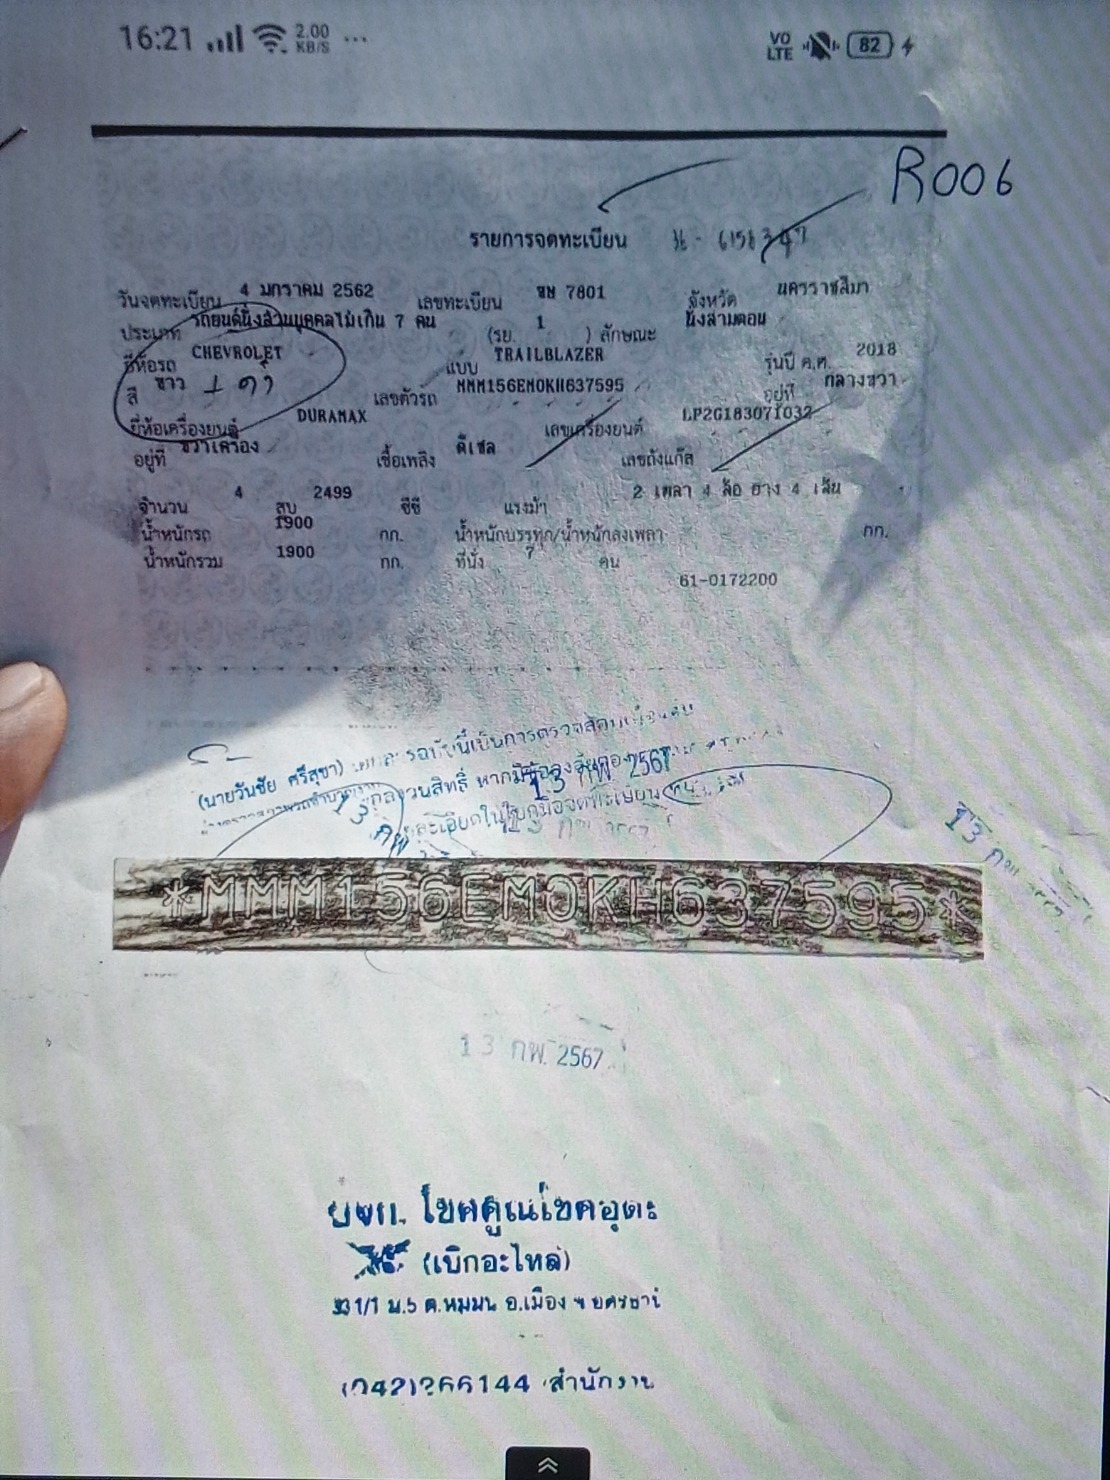 16:21 2.00 KB/S ... VO LTE 82
R006
รายการจดทะเบียน
วันจดทะเบียน 4 มกราคม 2562 เลขทะเบียน ขษ 7801 จังหวัด นครราชสีมา
ประเภท รถยนต์นั่งส่วนบุคคลไม่เกิน 7 คน (รย. 1 ) ลักษณะ นั่งสามตอน
ยี่ห้อรถ CHEVROLET แบบ TRAILBLAZER รุ่นปี ค.ศ. 2018
สี ขาว + ดำ เลขตัวรถ MMM156EM0KH637595 อยู่ที่ กลางขวา
ยี่ห้อเครื่องยนต์ DURAMAX เลขเครื่องยนต์ LP2G183071032
อยู่ที่ ขวาเครื่อง เชื้อเพลิง ดีเซล เลขถังแก๊ส
จำนวน 4 สูบ 2499 ซีซี แรงม้า 2 เพลา 4 ล้อ ยาง 4 เส้น
น้ำหนักรถ 1900 กก. น้ำหนักบรรทุก/น้ำหนักลงเพลา กก.
น้ำหนักรวม 1900 กก. ที่นั่ง 7 คน
61-0172200
(นายวันชัย ศรีสุขา)
13 กพ. 2567
*MMM156EM0KH637595*
13 กพ. 2567
โชคคูณโชคอุดร
(เบิกอะไหล่)
อ.เมือง
สำนักงาน